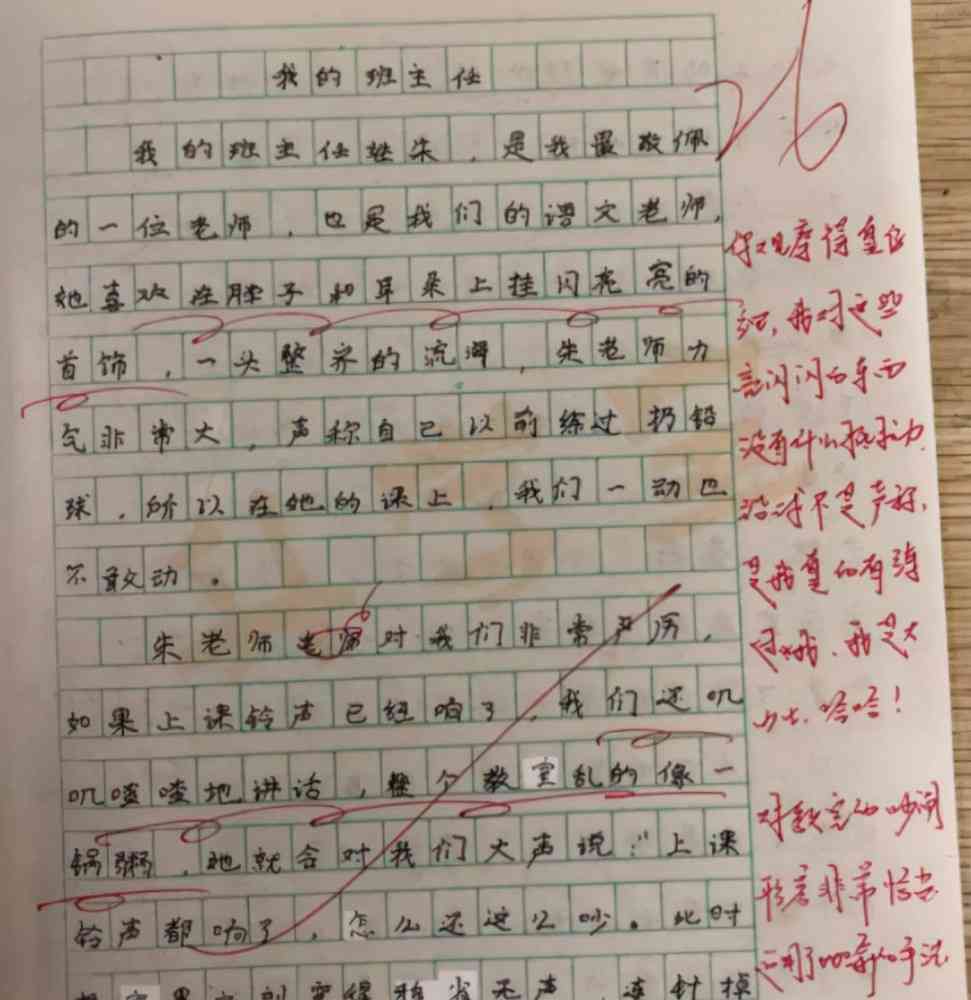 我的班主任
26
我的班主任姓朱，是我最敬佩
的一位老师，也是我们的语文老师，
她喜欢在脖子和耳朵上挂闪亮亮的
首饰，一头整齐的流海，朱老师力
气非常大，声称自己以前练过扔铅
球，所以在她的课上，我们一动也
不敢动。
朱老师老师对我们非常严厉，
如果上课铃声已经响了，我们还叽
叽喳喳地讲话，整个教室乱的像一
锅粥，她就会对我们大声说：“上课
铃声都响了，怎么还这么吵。此时
室里立刻变得鸦雀无声，连针掉
你观察得
我对这些
闪闪的东西
没有什么抵抗力
没错不是声称，
是我真的有练
过哦，我是大
力士，哈哈！
对教室的吵闹
形容非常恰当